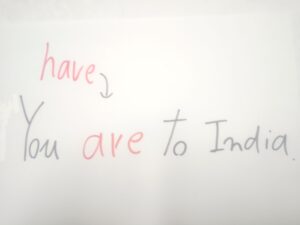 have
You are to India